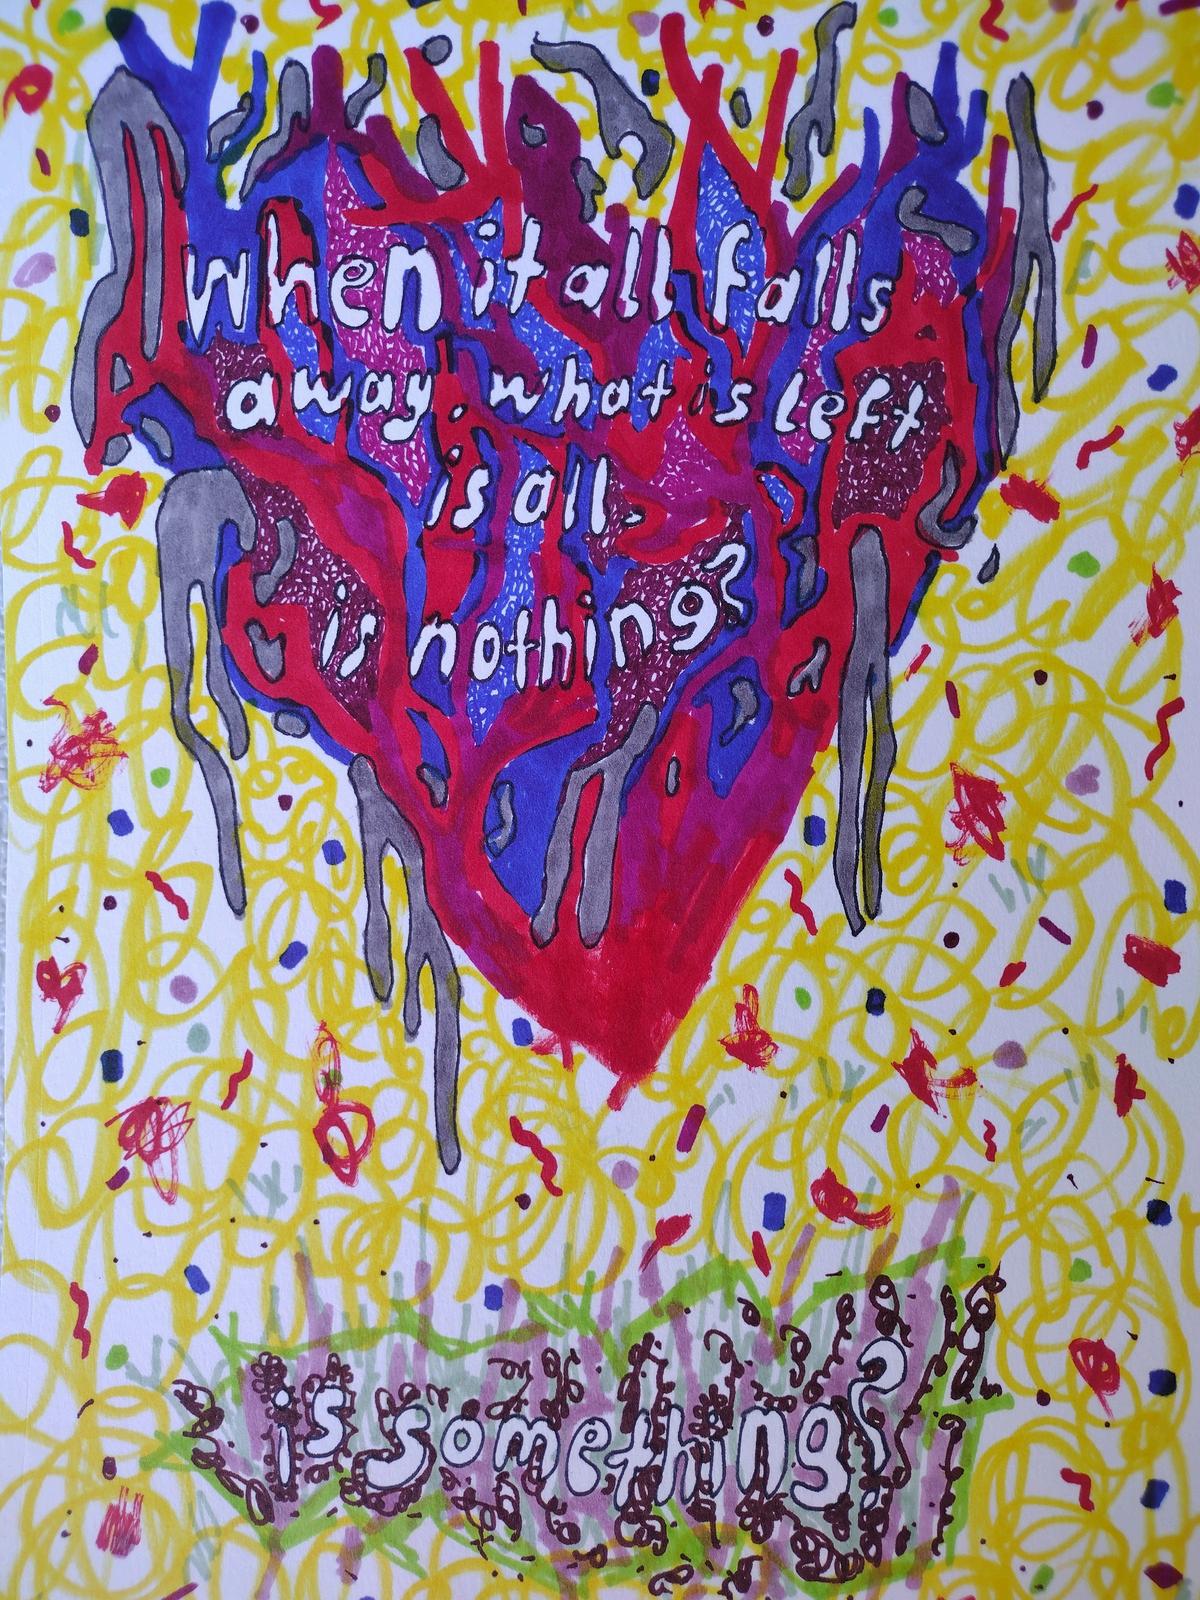 when it all falls
away. what is left
is all.
is nothing?
is something?